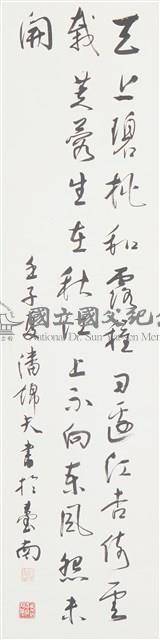 天上碧桃和露種日邊紅杏倚雲
栽芙蓉生在秋江上不向東風怨未
開
壬子夏潘錦夫書於臺南
國立國父紀念館
National Dr. Sun Yat-sen Mem